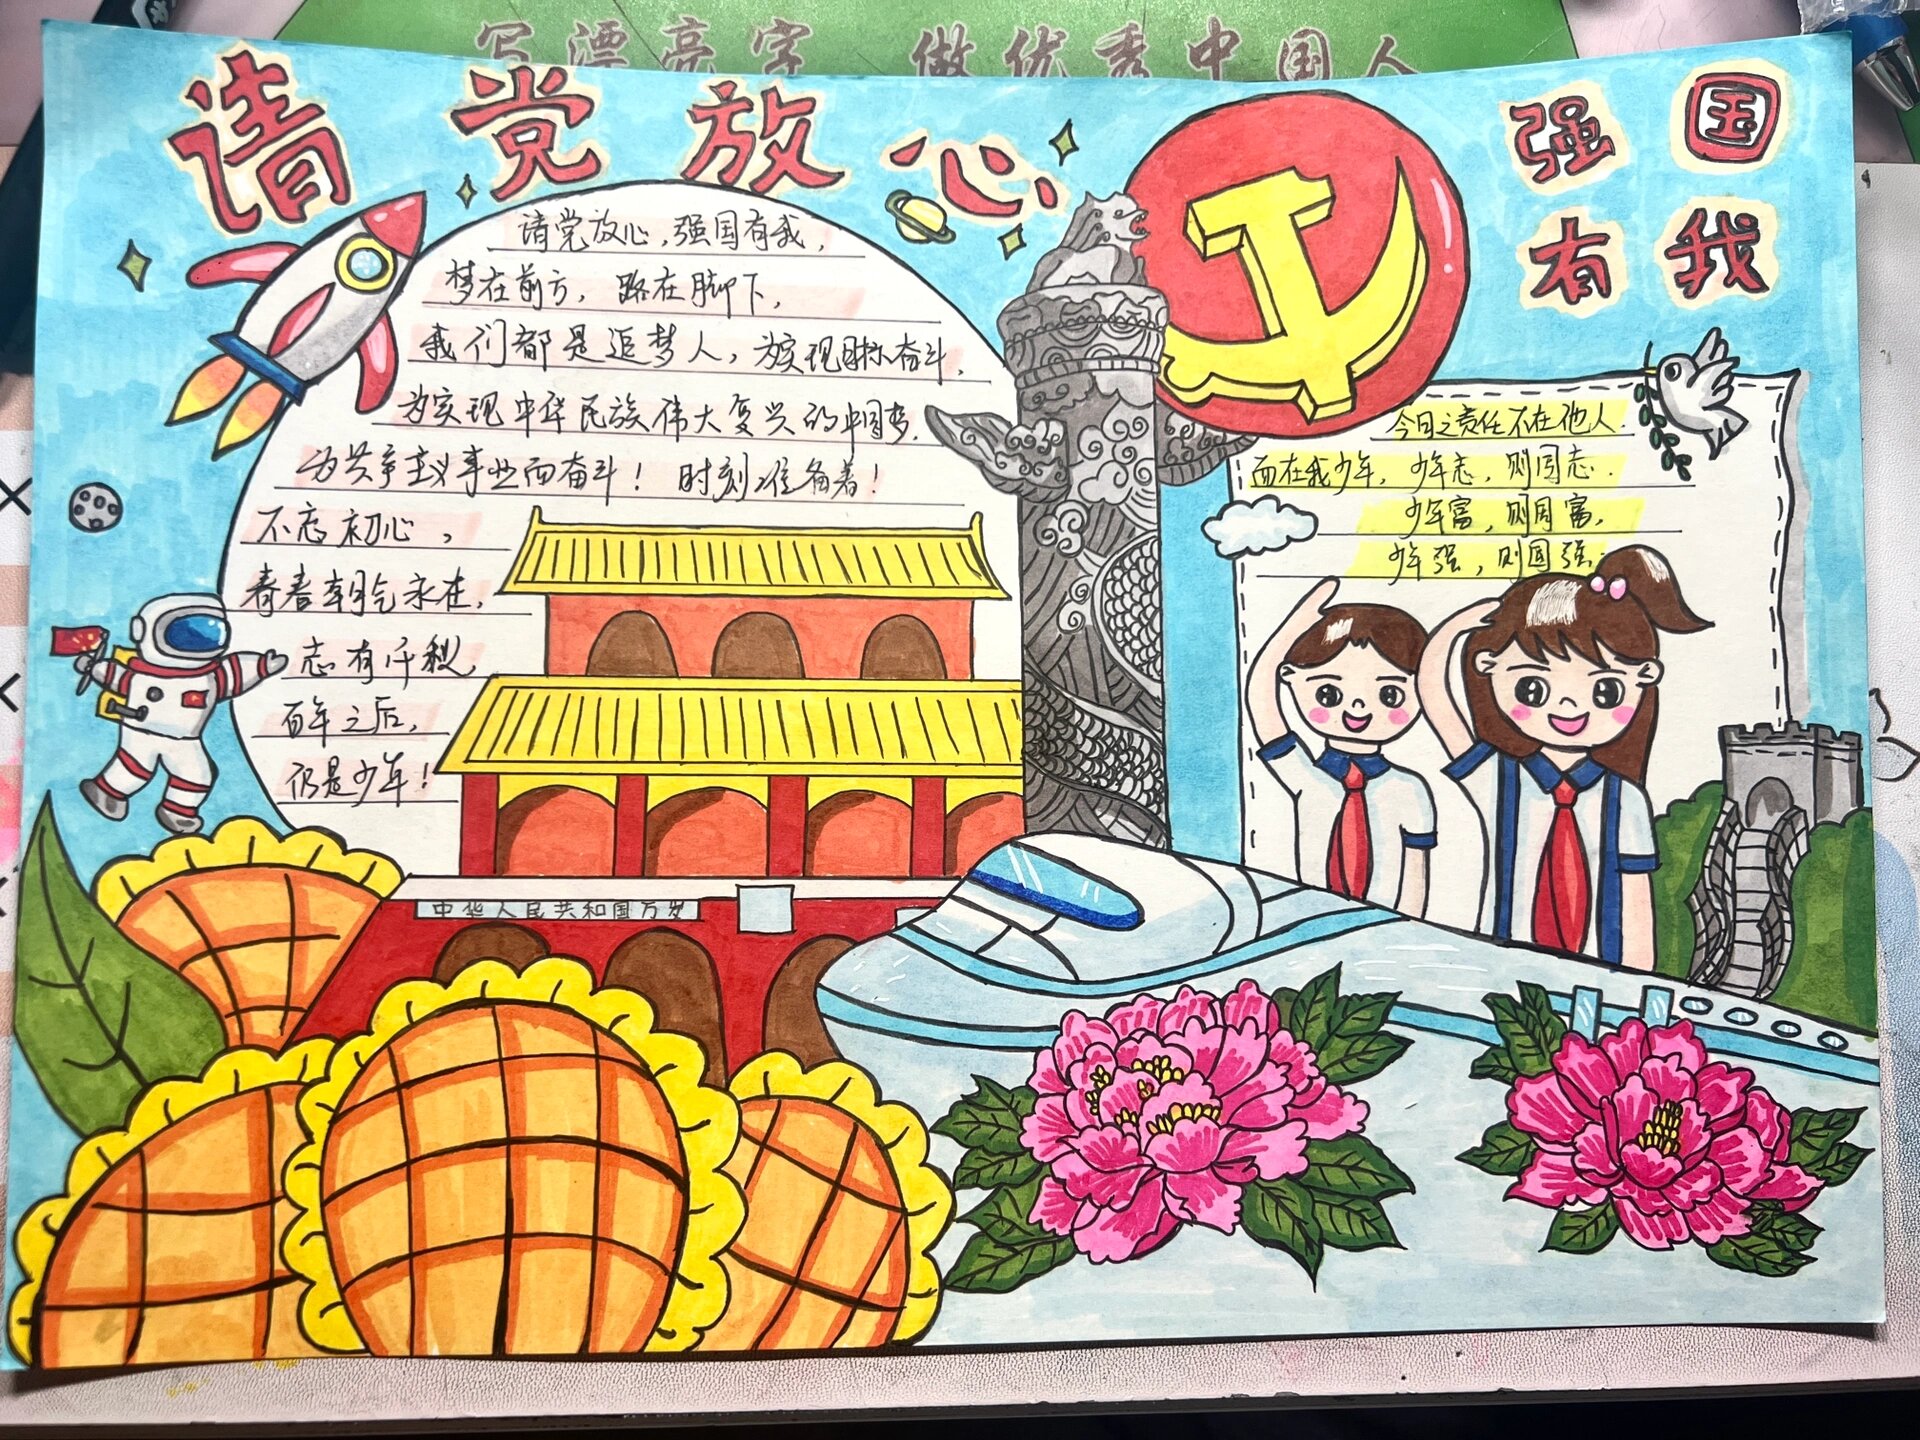 写漂亮字 做优秀中国人
请党放心
强国
有我
请党放心,强国有我,
梦在前方,路在脚下,
我们都是追梦人,为实现目标奋斗,
为实现中华民族伟大复兴的中国梦,
为共产主义事业而奋斗!时刻准备着!
不忘初心,
青春朝气永在,
志有千秋,
百年之后,
仍是少年!
今日之责任不在他人.
而在我少年,少年志,则国志.
少年富,则国富,
少年强,则国强.
中华人民共和国万岁